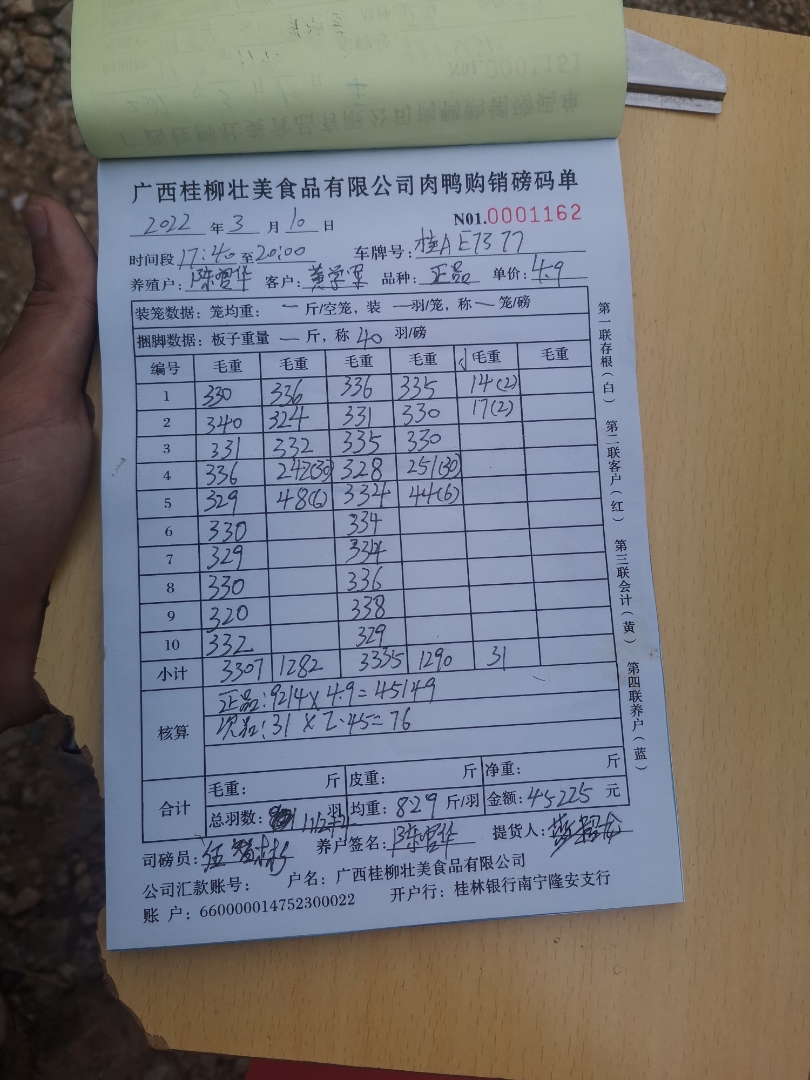 广西桂柳壮美食品有限公司肉鸭购销磅码单
2022 年 3 月 10 日 N01.0001162
时间段 17:40 至 20:00 车牌号: 桂AE7377
养殖户: 陈雪华 客户: 品种: 正品 单价: 4.9
装笼数据: 笼均重: 一 斤/空笼, 装 一 羽/笼, 称 一 笼/磅
捆脚数据: 板子重量 一 斤, 称 40 羽/磅
编号 毛重 毛重 毛重 毛重 毛重 毛重
1 330 336 336 335 14(2)
2 340 324 331 330 17(2)
3 331 332 335 330
4 336 242(30) 328 251(30)
5 329 48(6) 334 44(6)
6 330 334
7 329 334
8 330 336
9 320 338
10 332 329
小计 3307 1282 3335 1290 31
核算 正品: 9214 × 4.9 = 45149
次品: 31 × 2.45 = 76
合计 毛重: 斤 皮重: 斤 净重: 斤
总羽数: 羽 1112+4 均重: 8.29 斤/羽 金额: 45225 元
司磅员: 养户签名: 陈雪华 提货人:
公司汇款账号: 户名: 广西桂柳壮美食品有限公司
账 户: 660000014752300022 开户行: 桂林银行南宁隆安支行
第一联存根(白) 第二联客户(红) 第三联会计(黄) 第四联养户(蓝)